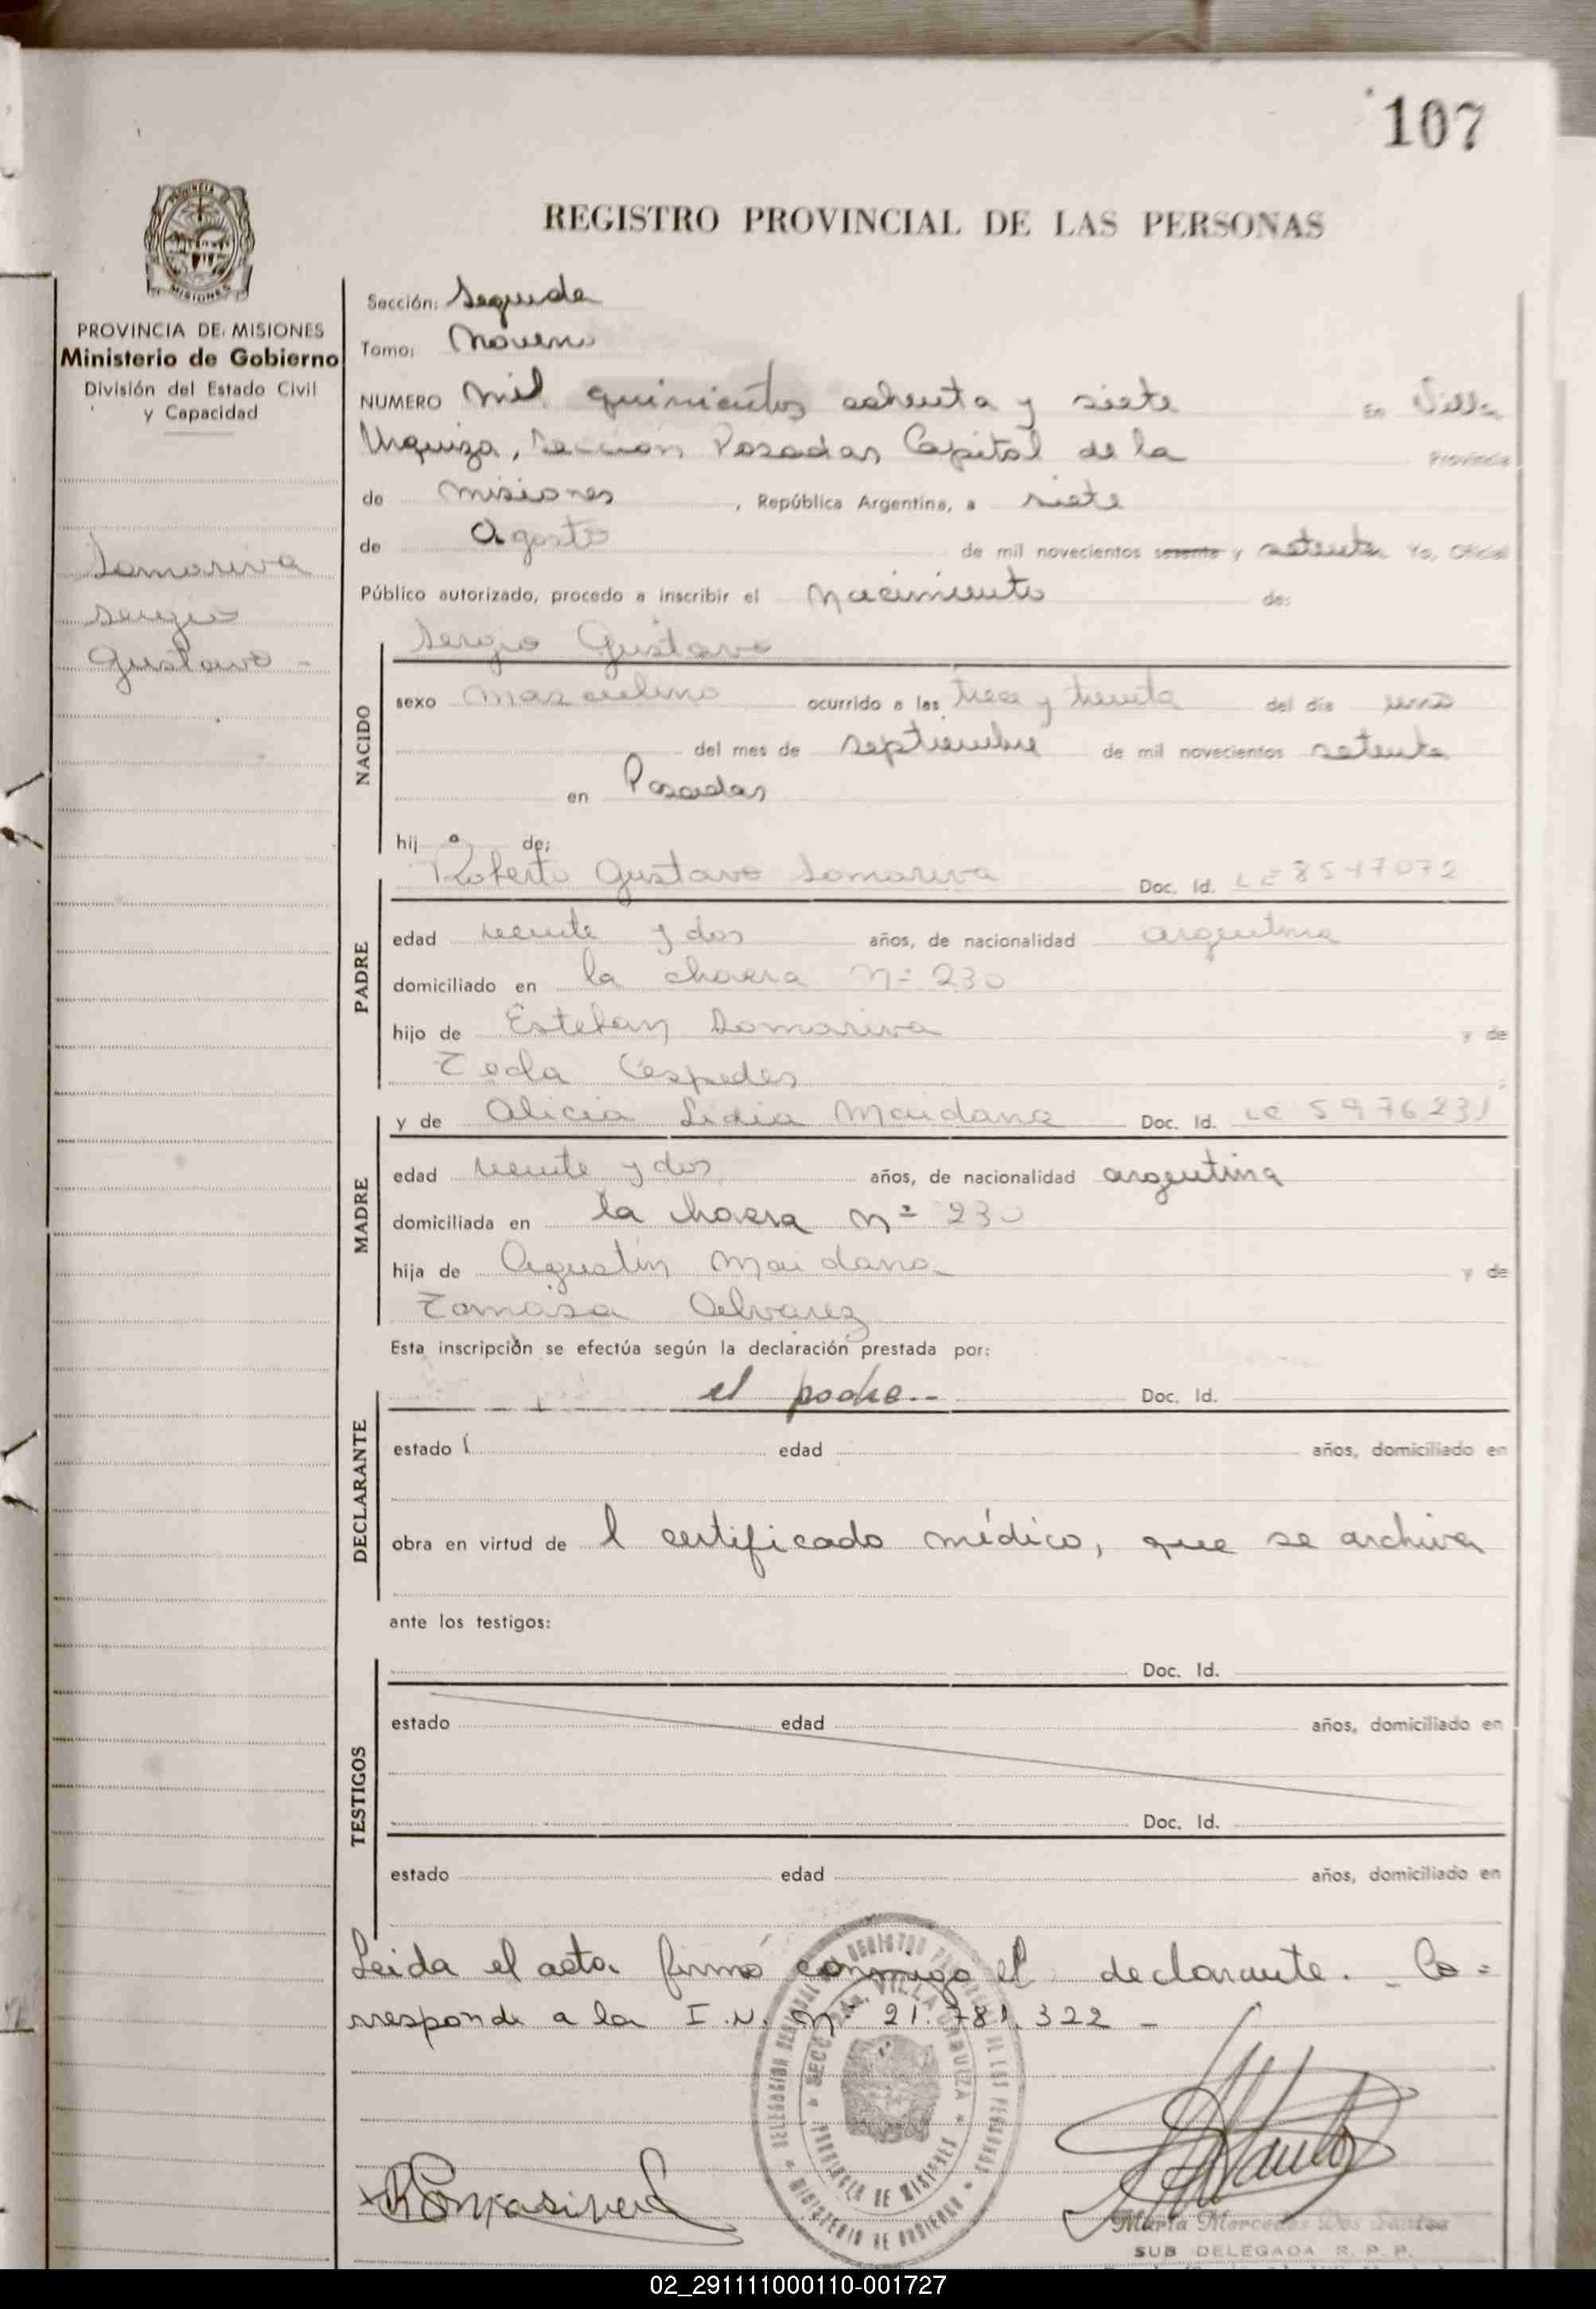 107
PROVINCIA
MISIONES
REGISTRO PROVINCIAL DE LAS PERSONAS
PROVINCIA DE MISIONES
Ministerio de Gobierno
División del Estado Civil
y Capacidad
Somariva
Sergio
Gustavo -
Sección: Segunda
Tomo: Noveno
NUMERO mil quinientos ochenta y siete En Villa
Urquiza, Sección Posadas Capital de la Provincia
de Misiones , República Argentina, a siete
de Agosto de mil novecientos sesenta y setenta Yo, Oficial
Público autorizado, procedo a inscribir el nacimiento de:
NACIDO
Sergio Gustavo
sexo masculino ocurrido a las trece y treinta del día uno
del mes de septiembre de mil novecientos setenta
en Posadas
hij o de:
PADRE
Roberto Gustavo Somariva Doc. Id. LE 8547072
edad veinte y dos años, de nacionalidad argentina
domiciliado en la chacra n= 230
hijo de Esteban Somariva y de
Tecla Céspedes
MADRE
y de Alicia Lidia Maidana Doc. Id. LC 5976231
edad veinte y dos años, de nacionalidad argentina
domiciliada en la chacra n= 230
hija de Agustín Maidana y de
Tomasa Alvarez
Esta inscripción se efectúa según la declaración prestada por:
DECLARANTE
el padre.-- Doc. Id.
estado edad años, domiciliado en
obra en virtud de l certificado médico, que se archiva
ante los testigos:
TESTIGOS
Doc. Id.
estado edad años, domiciliado en
Doc. Id.
estado edad años, domiciliado en
Leida el acta firmó conmigo el declarante. - Co=
rresponde a la I.N. Nº 21.781.322 -
SECC. VILLA URQUIZA
PROVINCIA DE MISIONES
MINISTERIO DE GOBIERNO
María Mercedes Dos Santos
SUB DELEGADA R. P. P.
02_291111000110-001727